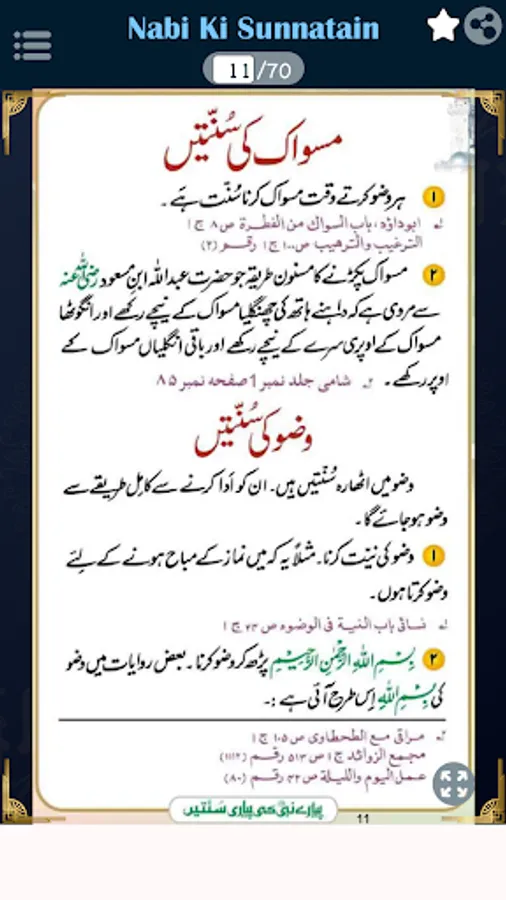 Nabi Ki Sunnatain
11/70
مسواک کی سُنّتیں
۱ ہر وضو کرتے وقت مسواک کرنا سُنّت ہے۔
لہ ابوداؤد، باب السواك من الفطرة ص ۸ ج ۱
الترغيب والترهيب ص۱۰۰ ج۱ رقم (۲)
۲ مسواک پکڑنے کا مسنون طریقہ جو حضرت عبداللہ ابنِ مسعود رضی اللہ عنہ
سے مروی ہے کہ داہنے ہاتھ کی چھنگلیا مسواک کے نیچے رکھے اور انگوٹھا
مسواک کے اوپری سرے کے نیچے رکھے اور باقی انگلیاں مسواک کے
اوپر رکھے۔ لہ شامی جلد نمبر 1 صفحہ نمبر ۸۵
وضو کی سُنّتیں
وضو میں اٹھارہ سُنّتیں ہیں۔ ان کو اَدا کرنے سے کامِل طریقے سے
وضو ہو جائے گا۔
۱ وضو کی نیّت کرنا۔ مثلاً یہ کہ میں نماز کے مباح ہونے کے لئے
وضو کرتا ہوں۔
لہ نسائی باب النية فی الوضوء ص ۲۴ ج ۱
۲ بِسْمِ اللهِ الرَّحْمٰنِ الرَّحِيْمِ پڑھ کر وضو کرنا۔ بعض روایات میں وضو
کی بِسْمِ اللهِ اِس طرح آئی ہے :۔
مراقی مع الطحطاوی ص ۱۰۵ ج ۱
مجمع الزوائد ج ۱ ص ۵۱۳ رقم (۱۱۱۲)
عمل اليوم والليلة ص ۴۲ رقم (۸۰)
پیارے نبیؐ کی پیاری سنتیں
11